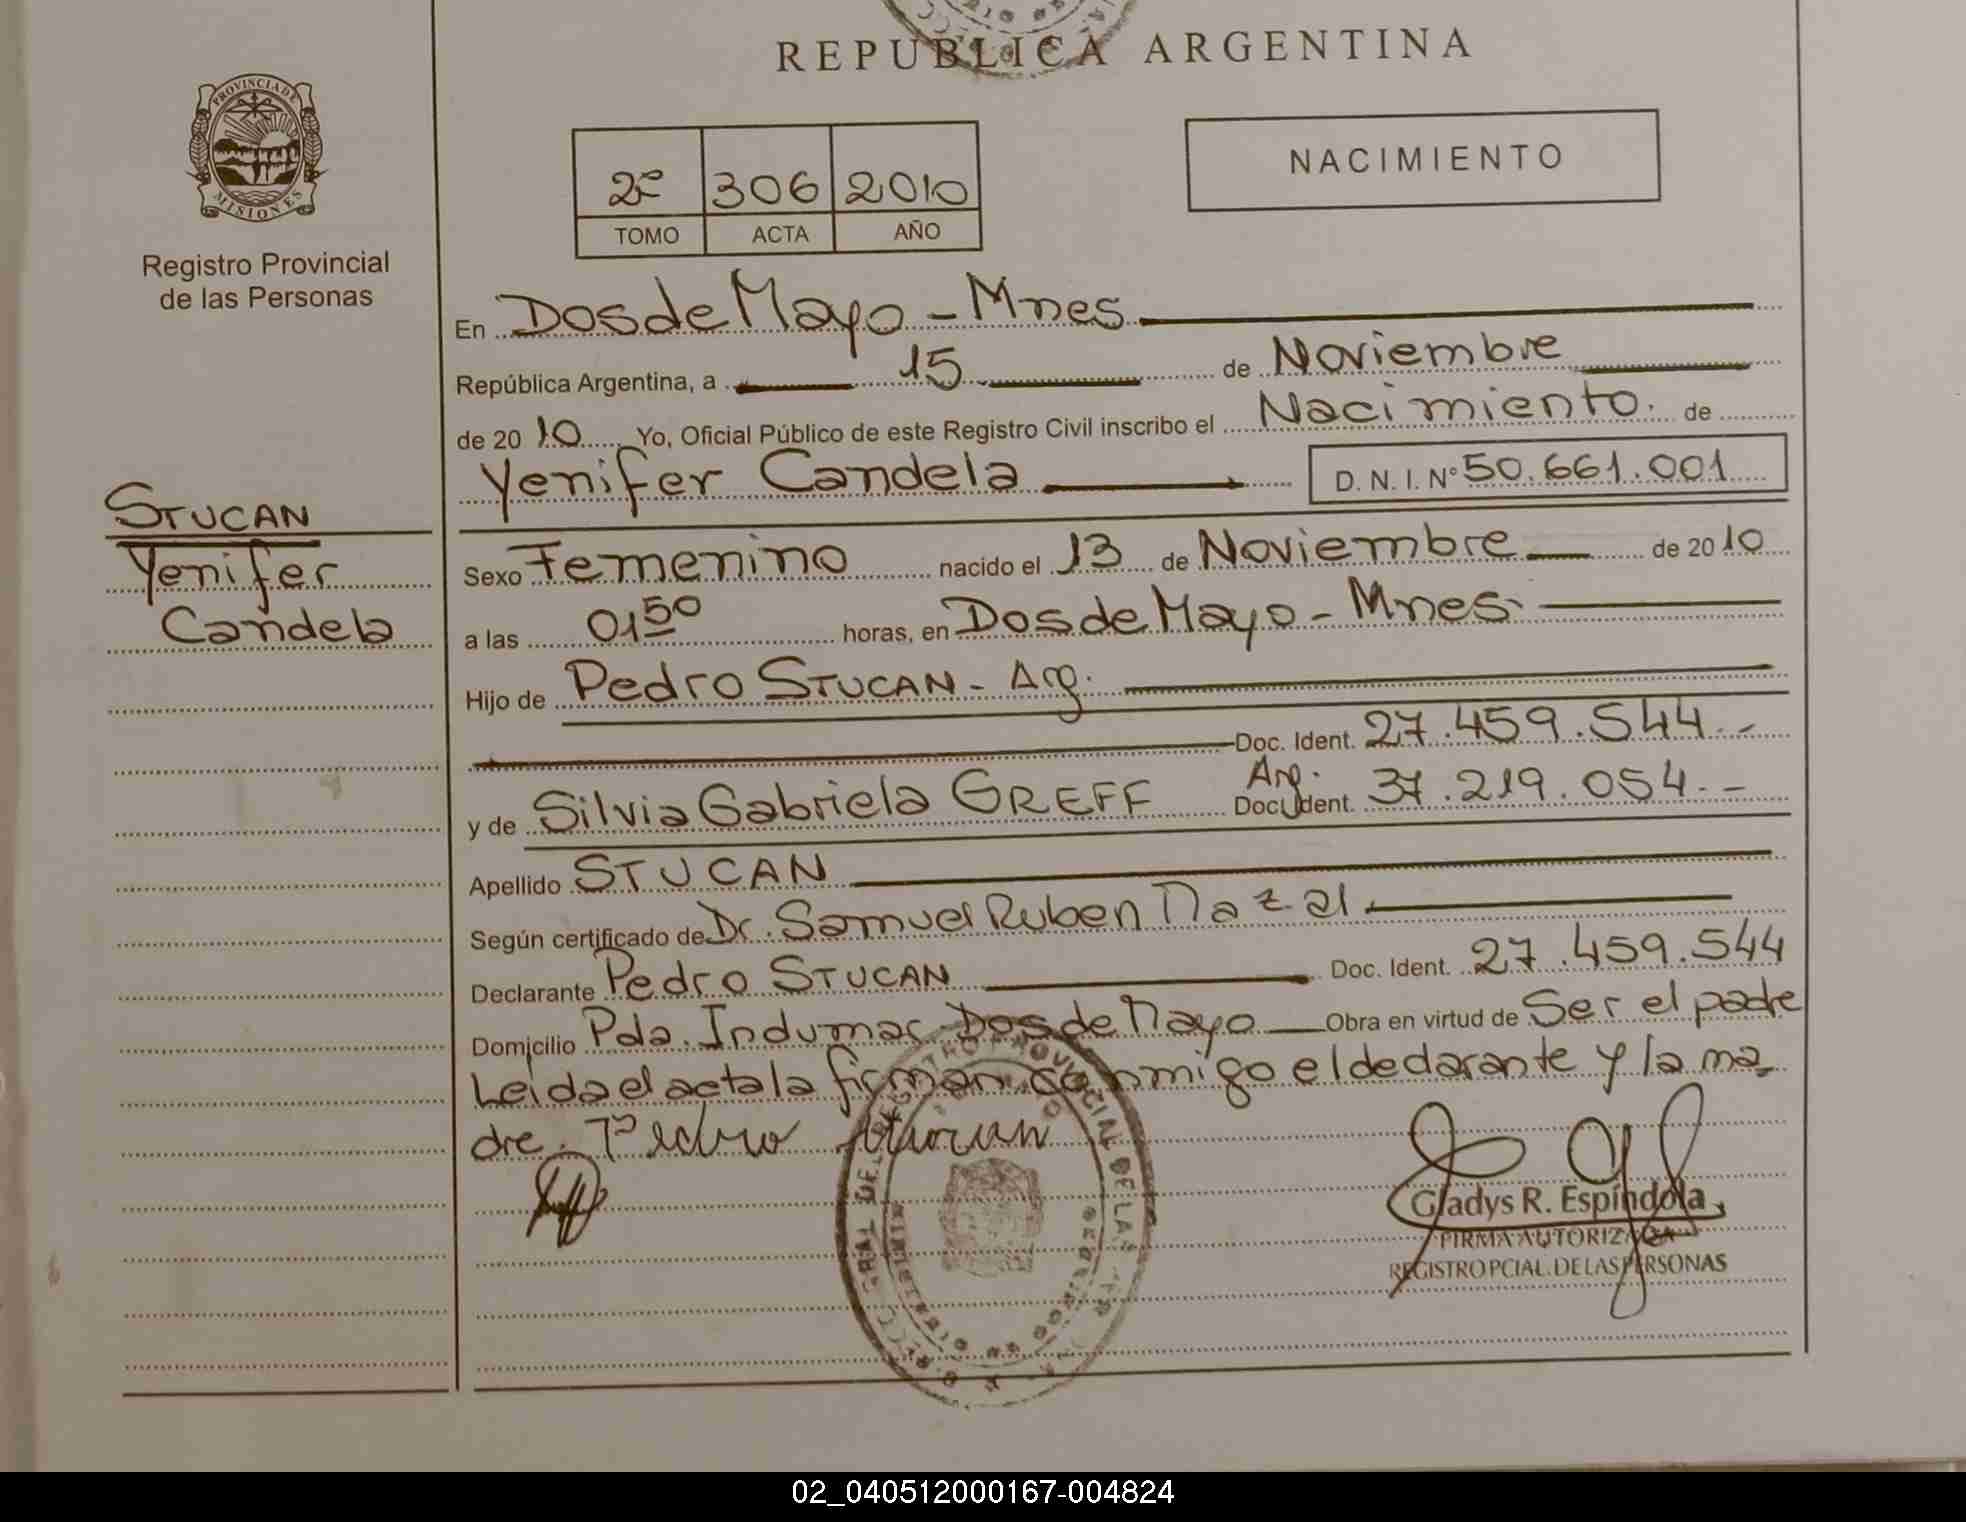 REPUBLICA ARGENTINA
PROVINCIA DE
MISIONES
Registro Provincial
de las Personas
NACIMIENTO
2º 306 2010
TOMO ACTA AÑO
En Dos de Mayo - Mnes
República Argentina, a 15 de Noviembre
de 2010 Yo, Oficial Público de este Registro Civil inscribo el Nacimiento. de
Yenifer Candela D. N. I. Nº 50.661.001
STUCAN
Yenifer
Candela
Sexo Femenino nacido el 13 de Noviembre de 2010
a las 01 50 horas, en Dos de Mayo - Mnes.
Hijo de Pedro STUCAN - Arg.
Doc. Ident. 27.459.544.-
y de Silvia Gabriela GREFF Arg. Doc. Ident. 37.219.054.-
Apellido STUCAN
Según certificado de Dr. Samuel Ruben Mazal
Declarante Pedro STUCAN Doc. Ident. 27.459.544
Domicilio Pda. Indumar - Dos de Mayo Obra en virtud de Ser el padre
Leida el acta la firman conmigo el declarante y la ma
dre. Pedro Stucan
Gladys R. Espíndola
FIRMA AUTORIZADA
REGISTRO PCIAL. DE LAS PERSONAS
02_040512000167-004824